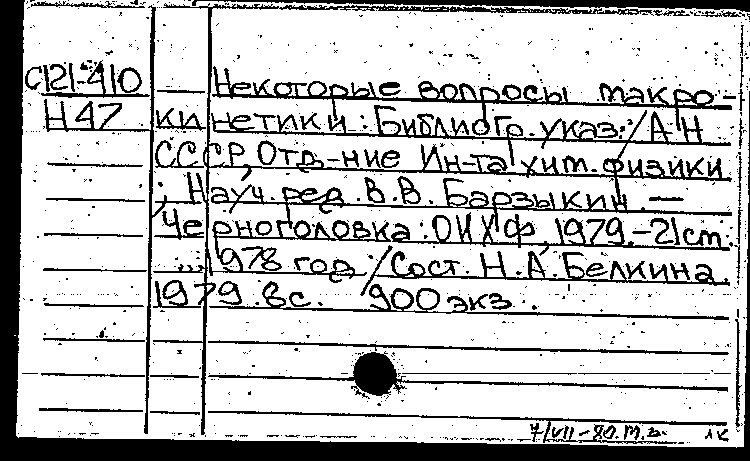 С121-410 Некоторые вопросы макро-
Н47 кинетики : Библиогр. указ. / АН
СССР, Отд-ние Ин-та хим. физики
; Науч. ред. В. В. Барзыкин. —
Черноголовка : ОИХФ, 1979. - 21 см.
... 1978 год / Сост. Н. А. Белкина.
1979. 8 с. 900 экз.
7/VII-80. М.